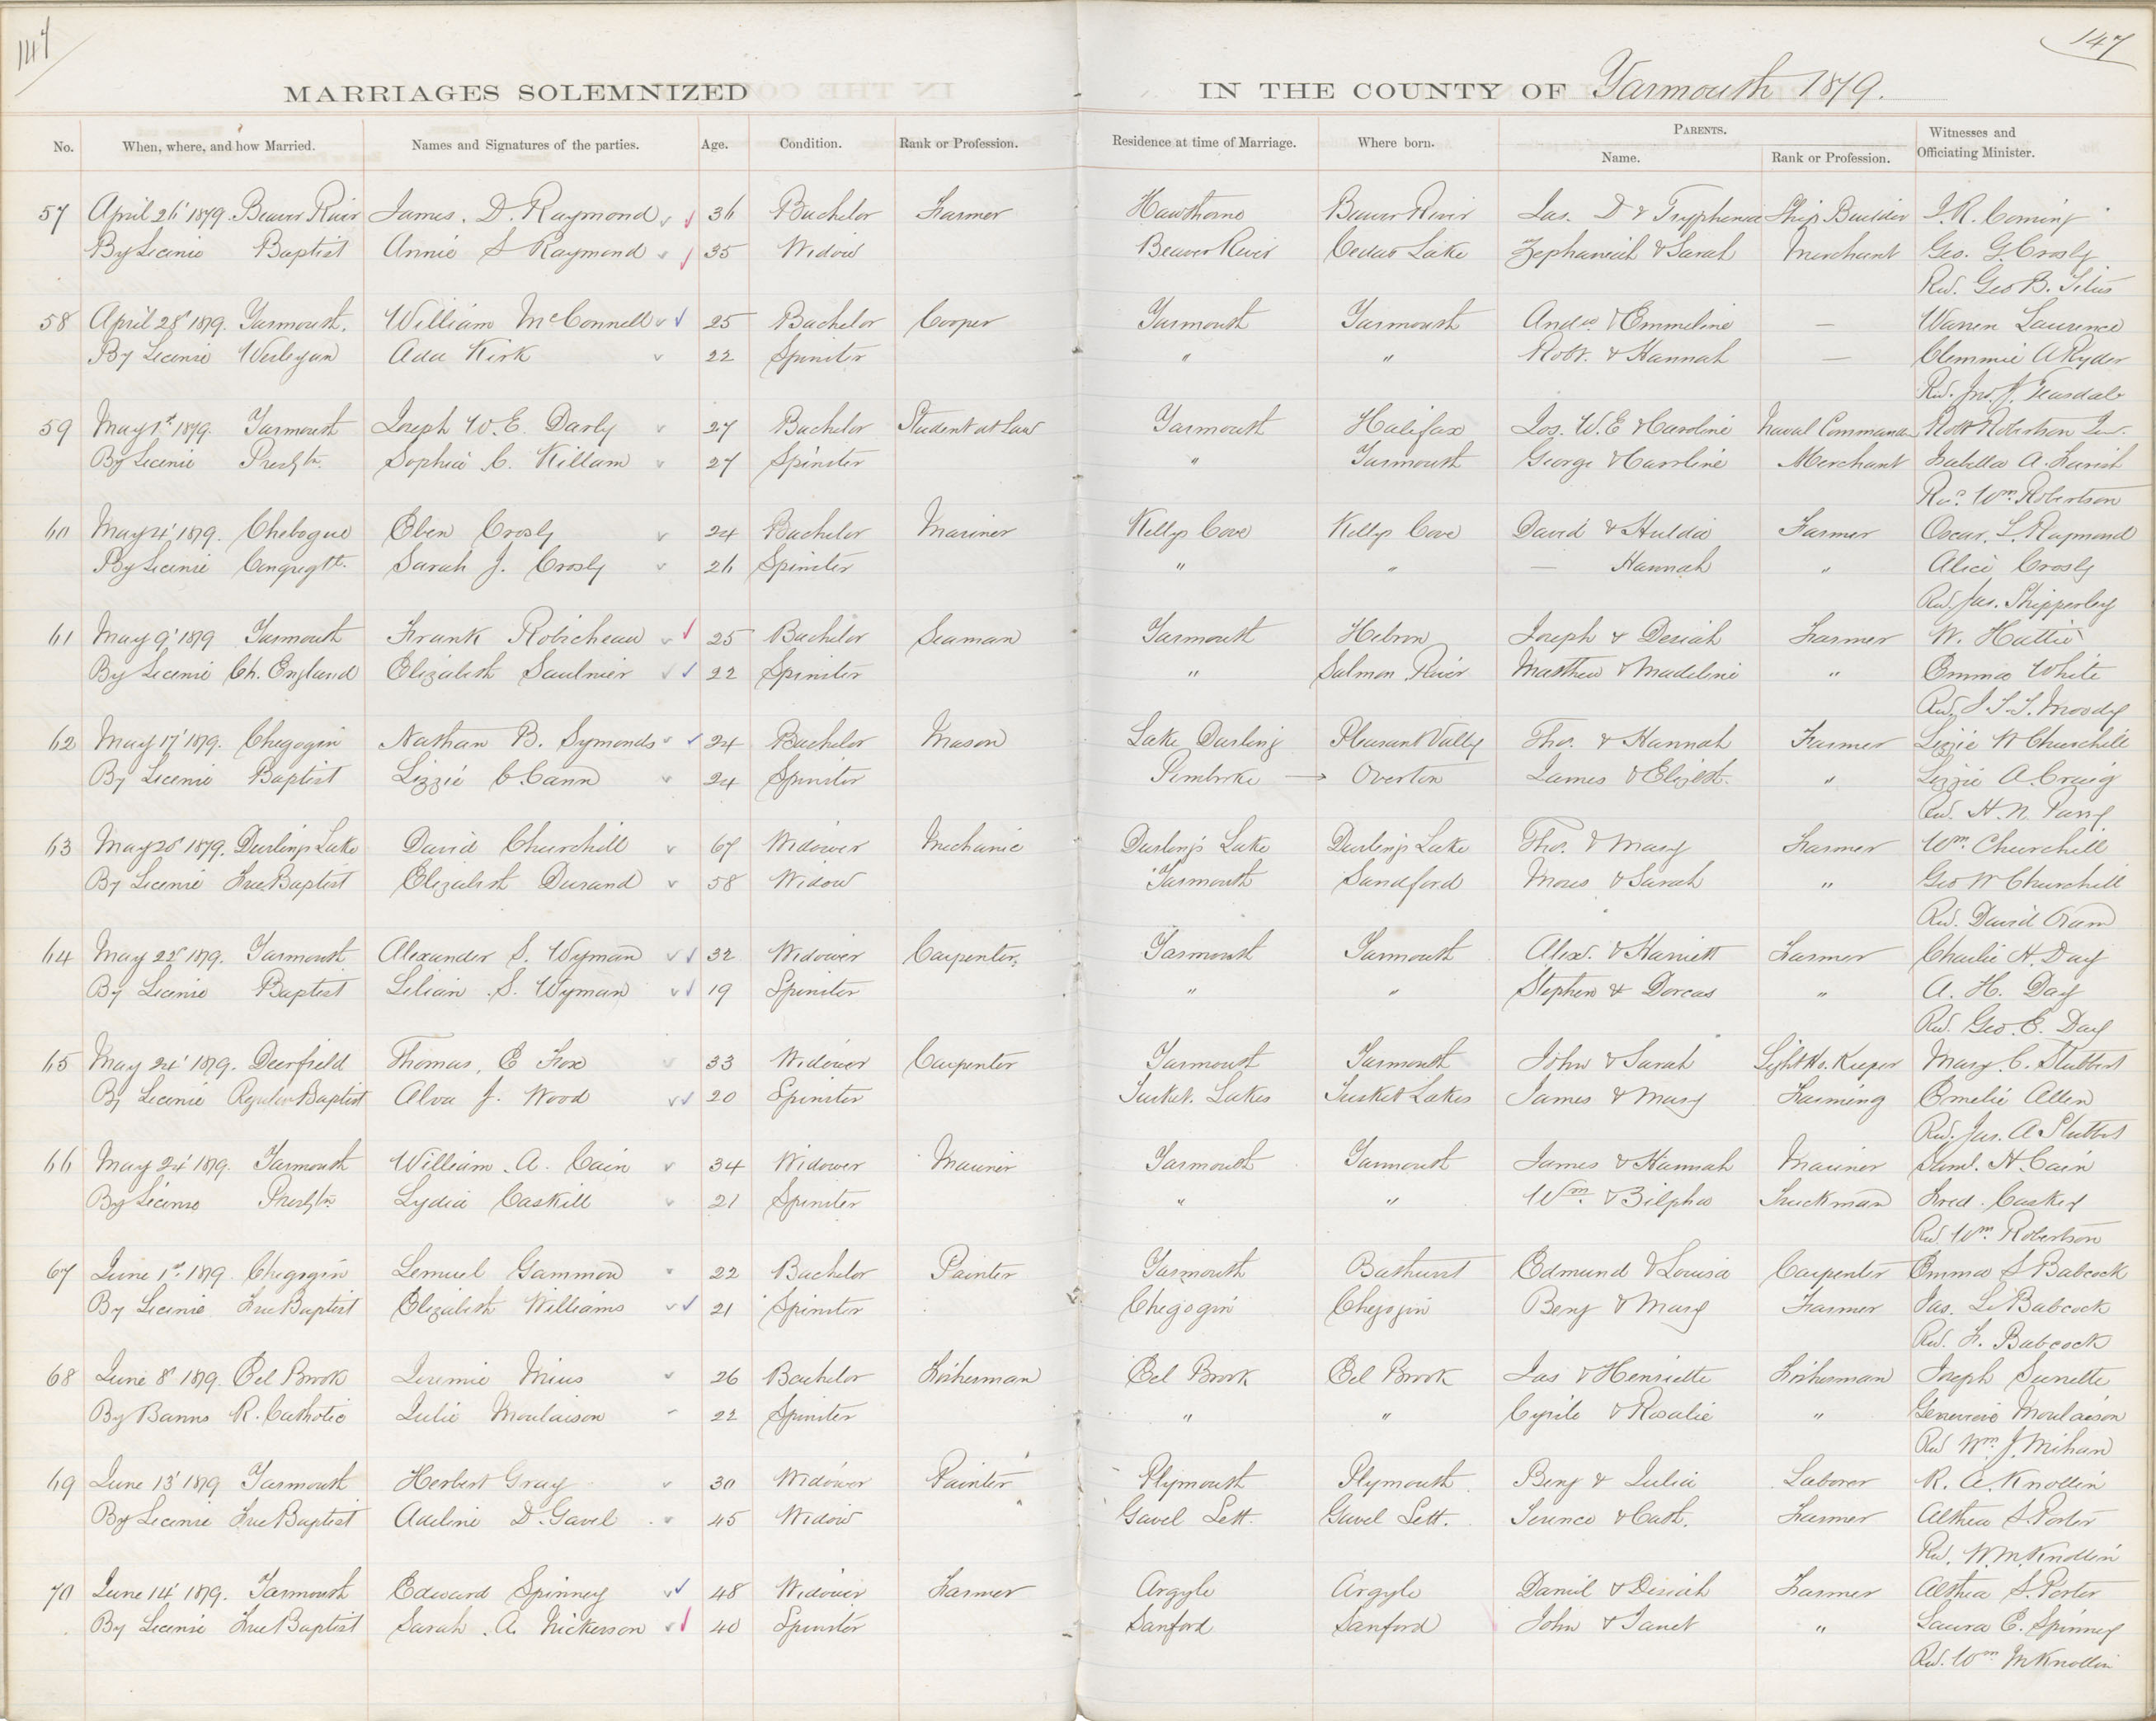 147
147
MARRIAGES SOLEMNIZED IN THE COUNTY OF Yarmouth 1879.
No. When, where, and how Married. Names and Signatures of the parties. Age. Condition. Rank or Profession. Residence at time of Marriage. Where born. PARENTS. Name. Rank or Profession. Witnesses and Officiating Minister.
57 April 26' 1879. Beaver River James. D. Raymond 36 Bachelor Farmer Hawthorne Beaver River Jas. D & Tryphenia Ship Builder J. R. Corning
By License Baptist Annie S Raymond 35 Widow Beaver River Cedar Lake Zephaniah & Sarah Merchant Geo. G. Crosby
Rev. Geo B. Titus
58 April 28' 1879. Yarmouth. William McConnell 25 Bachelor Cooper Yarmouth Yarmouth Andw & Emmeline — Warren Laurence
By License Wesleyan Ada Kirk 22 Spinster " " Robt. & Hannah — Clemmie A Ryder
Rev. Jno. J. Teasdale
59 May 1st 1879. Yarmouth Joseph W. E. Darly 27 Bachelor Student at Law Yarmouth Halifax Jos. W. E & Caroline Naval Commander Robt Robertson Jr.
By License Presbtn. Sophia C. Killam 27 Spinster " Yarmouth George & Caroline Merchant Isabella A. Farish
Rev. Wm. Robertson
60 May 4' 1879. Chebogue Eben Crosby 24 Bachelor Mariner Kellys Cove Kellys Cove David & Huldia Farmer Oscar. L. Raymond
By License Congregtl. Sarah J. Crosby 26 Spinster " " — Hannah " Alice Crosby
Rev. Jas. Shipperley
61 May 9' 1879 Yarmouth Frank Robicheau 25 Bachelor Seaman Yarmouth Hebron Joseph & Desiah Farmer W. Hattie
By License Ch. England Elizabeth Saulnier 22 Spinster " Salmon River Matthew & Madeline " Emma White
Rev. J. T. T. Moody
62 May 17' 1879. Chegogin Nathan B. Symonds 24 Bachelor Mason Lake Darling Pleasant Vally Tho. & Hannah Farmer Lizzie W Churchill
By License Baptist Lizzie C Cann 24 Spinster Pembroke → Overton James & Elizbth. " Lizzie A. Craig
Rev. H. N. Parry
63 May 20' 1879. Darlings Lake David Churchill 67 Widower Mechanic Darlings Lake Darlings Lake Tho. & Mary Farmer Wm. Churchill
By License Free Baptist Elizabeth Durand 58 Widow Yarmouth Sandford Moses & Sarah " Geo W Churchill
Rev. David Oram
64 May 22' 1879. Yarmouth Alexander S. Wyman 32 Widower Carpenter Yarmouth Yarmouth Alex. & Harriett Farmer Charlie H. Day
By License Baptist Lilian S. Wyman 19 Spinster " " Stephen & Dorcas " A. H. Day
Rev. Geo. E. Day
65 May 24' 1879. Deerfield Thomas, E Fox 33 Widower Carpenter Yarmouth Yarmouth John & Sarah Light Ho. Keeper Mary. C. Stubbert
By License Regular Baptist Alva J. Wood 20 Spinster Tusket. Lakes Tusket Lakes James & Mary Farming Emelie Allen
Rev. Jas. A Stubbert
66 May 24' 1879. Yarmouth William. A. Cain 34 Widower Mariner Yarmouth Yarmouth James & Hannah Mariner Saml. H. Cain
By License Presbtn. Lydia Caskill 21 Spinster " " Wm. & Zilpha Truckman Fred. Caskey
Rev. Wm. Robertson
67 June 1st. 1879. Chegogin Lemuel Gammon 22 Bachelor Painter Yarmouth Bathurst Edmund & Louisa Carpenter Emma S Babcock
By License Free Baptist Elizabeth Williams 21 Spinster Chegogin Chegogin Benj & Mary Farmer Jas. L. Babcock
Rev. F. Babcock
68 June 8' 1879. Eel Brook Jeremie Mius 26 Bachelor Fisherman Eel Brook Eel Brook Jas & Henriette Fisherman Joseph Surrette
By Banns R. Catholic Julie Moulaison 22 Spinster " " Cyrile & Rosalie " Genevieve Moulaison
Rev Wm. J. Mihan
69 June 13' 1879 Yarmouth Herbert Gray 30 Widower Painter Plymouth Plymouth Benj & Julia Laborer R. A. Knollin
By License Free Baptist Adeline D. Gavel 45 Widow Gavel Sett. Gavel Sett. Terence & Cath. Farmer Althea S. Porter
Rev. W. M. Knollin
70 June 14' 1879. Yarmouth Edward Spinney 48 Widower Farmer Argyle Argyle Daniel & Desiah Farmer Althea S. Porter
By License Free Baptist Sarah. A. Nickerson 40 Spinster Sanford Sanford John & Janet " Laura E. Spinney
Rev. Wm M Knollin